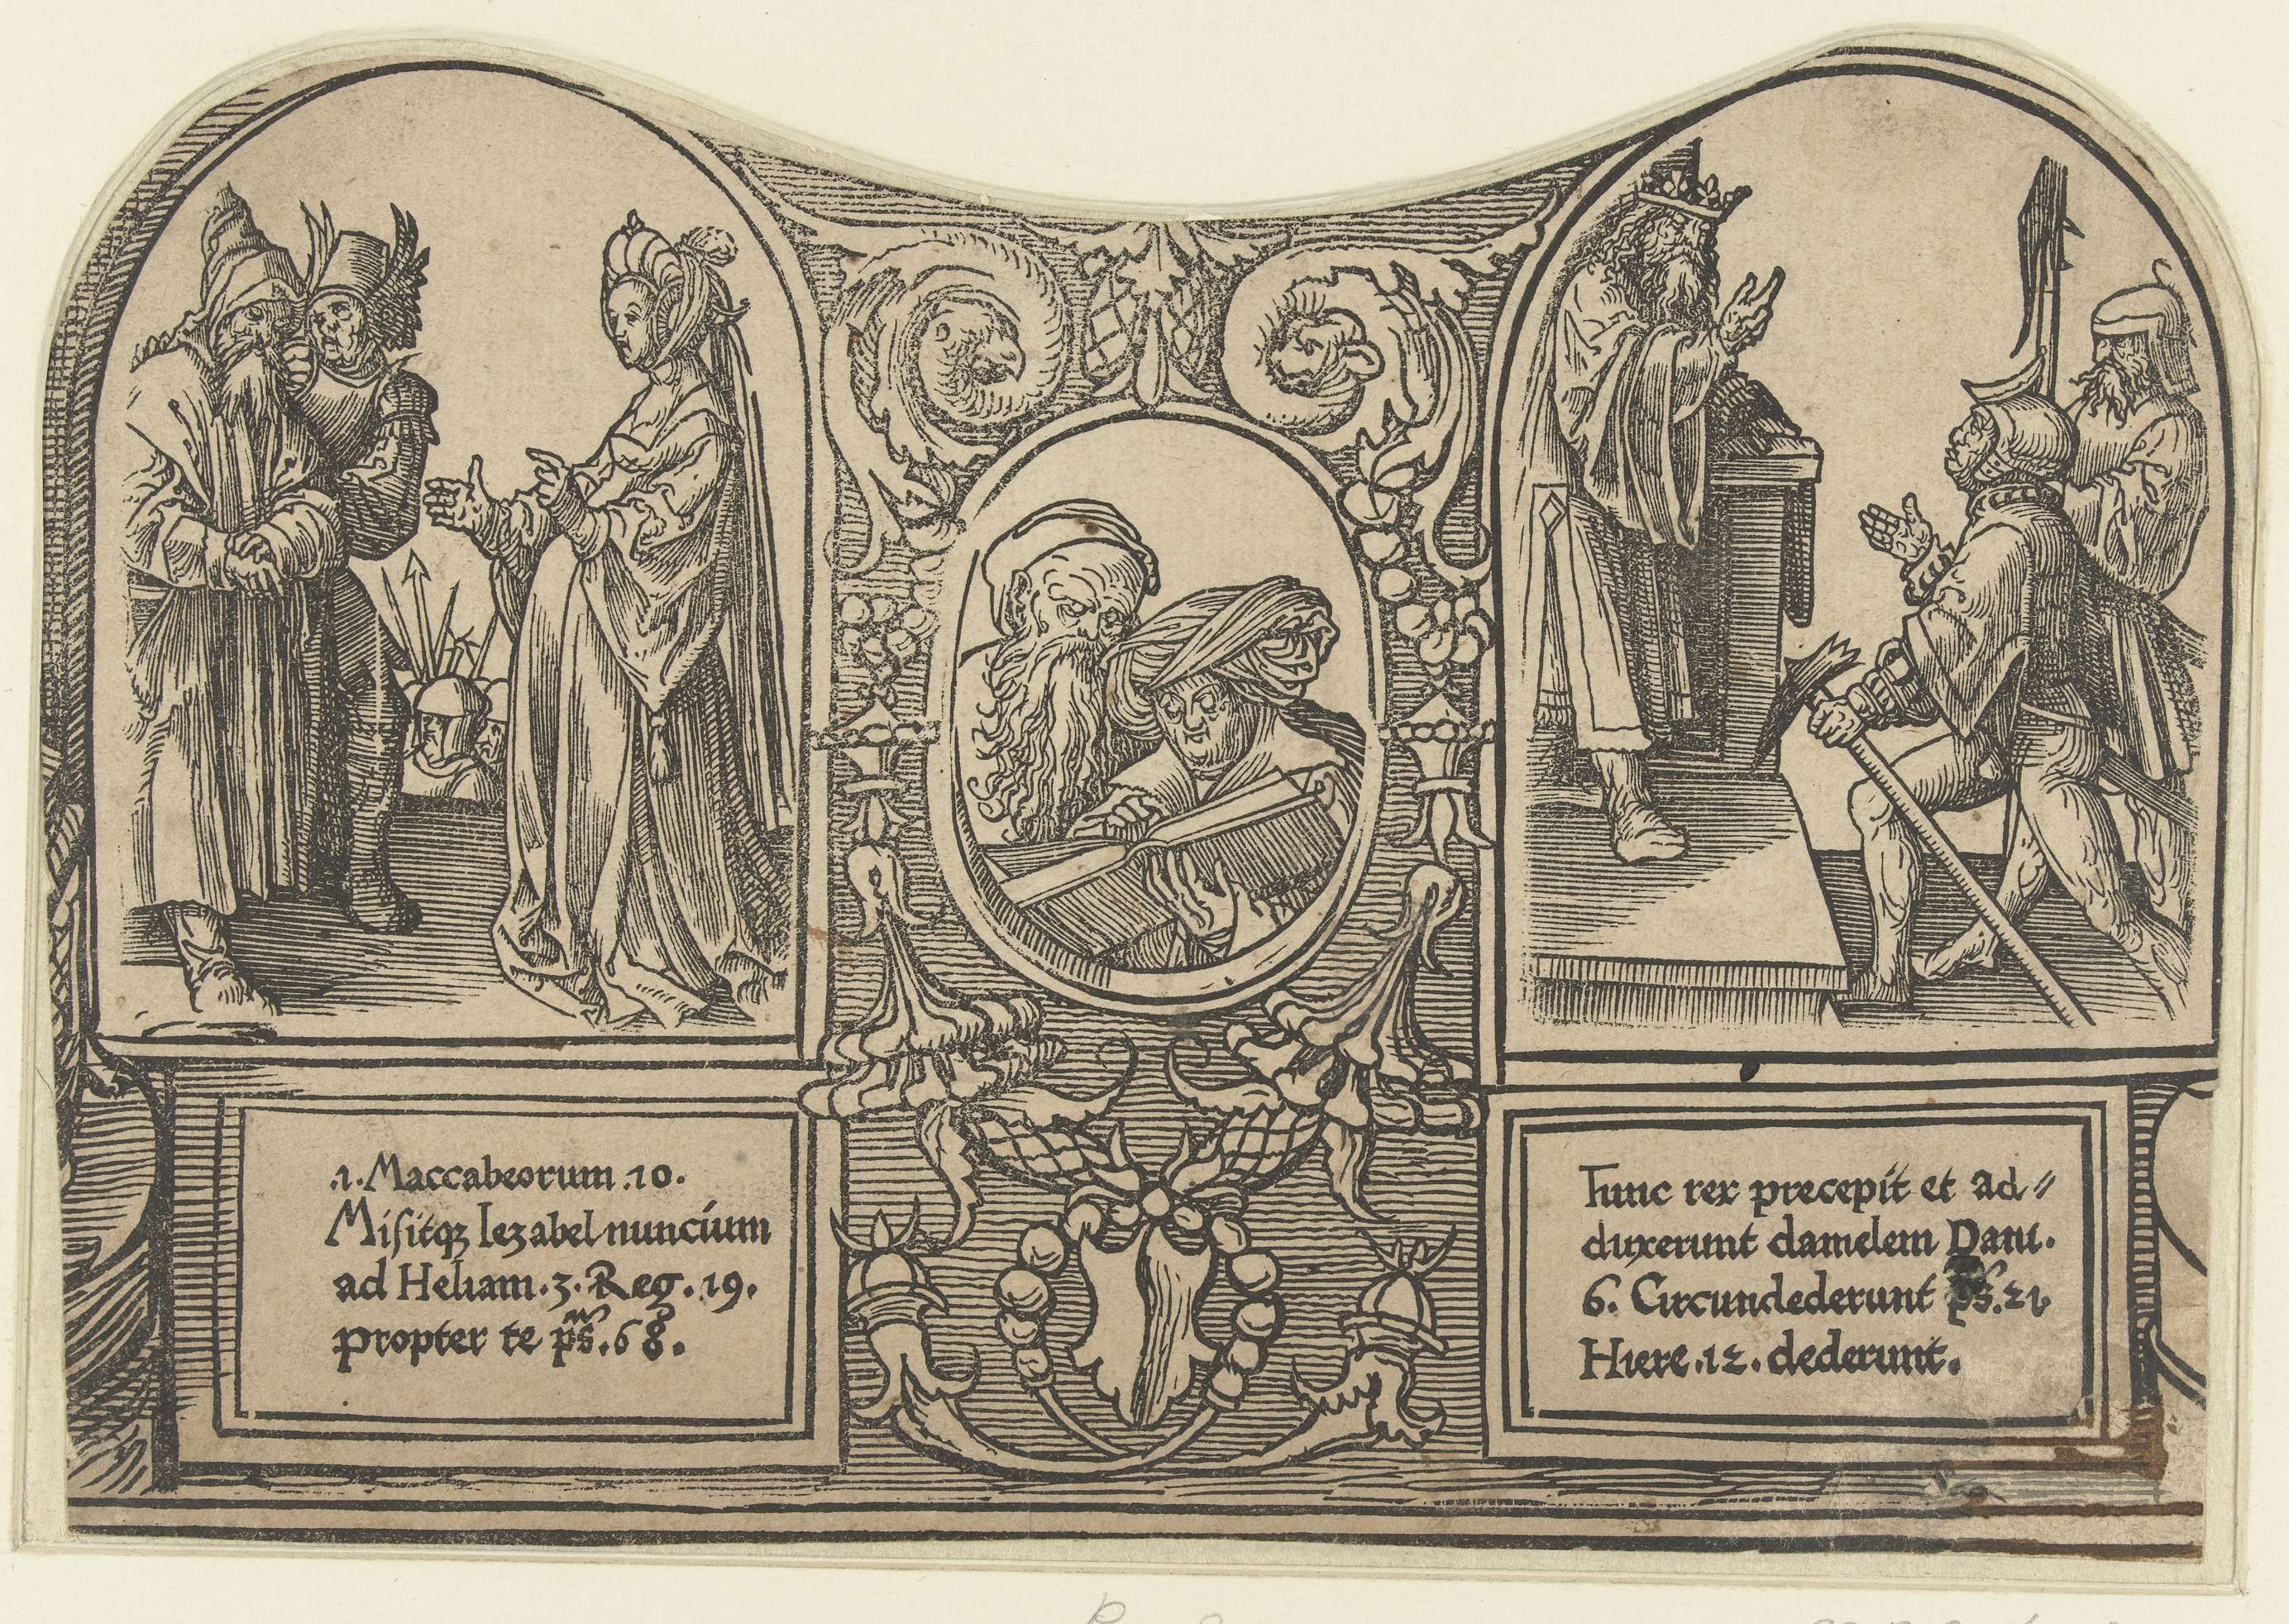 .1. Maccabeorum .10.
Misitqꝫ Iezabel nuncium
ad Heliam .3. Reg. 19.
propter te ps. 68.
Tunc rex precepit et ad⸗
duxerunt danielem Dani.
6. Circundederunt ps. 21.
Hiere .12. dederunt.